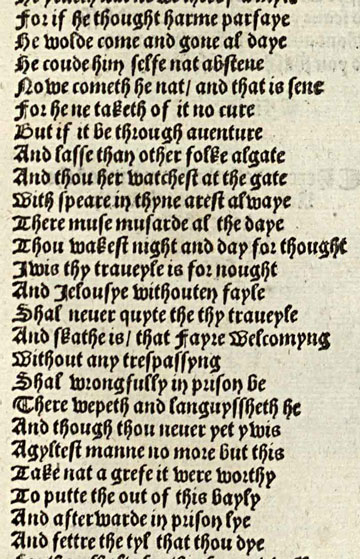 For if he thought harme parfaye
He wolde come and gone al daye
He coude him selfe nat abstene
Nowe cometh he nat/ and that is sene
For he ne taketh of it no cure
But if it be through auenture
And lasse than other folke algate
And thou her watchest at the gate
With speare in thyne arest alwaye
There muse musarde al the daye
Thou wakest night and day for thought
Iwis thy traueyle is for nought
And Jelousye withouten fayle
Shal never quyte the thy traueyle
And skathe is/ that Fayre Welcomyng
Without any trespassyng
Shal wrongfully in prison be
There wepeth and languyssheth he
And though thou neuer yet ywis
Agyltest manne no more but this
Take nat a grefe it were worthy
To putte the out of this bayly
And afterwarde in prison lye
And fettre the tyl that thou dye